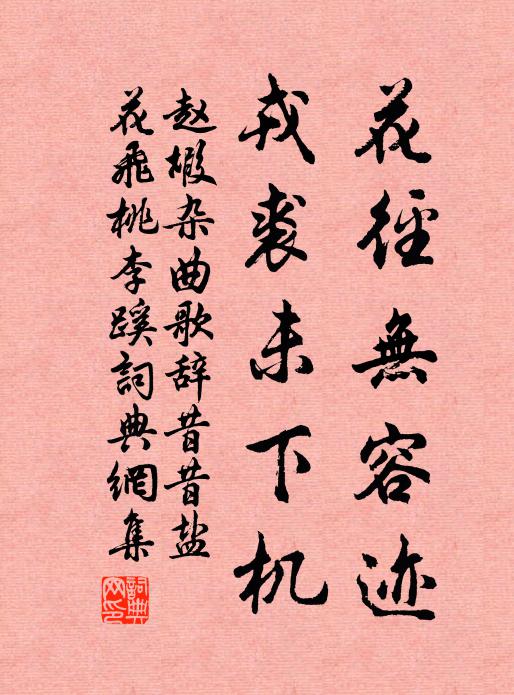 花径無容迹
戎裘未下机
赵嘏杂曲歌辞昔昔盐
花飛桃李蹊詞典網集
詞典網印